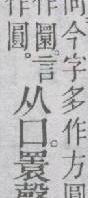 今字多作方圓
作圜。言
作圓。
从囗。睘聲